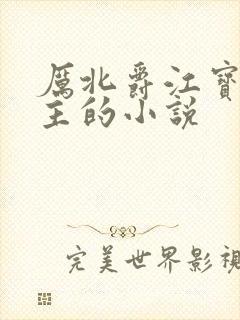 厲北爵江寶
主的小說
完美世界影視